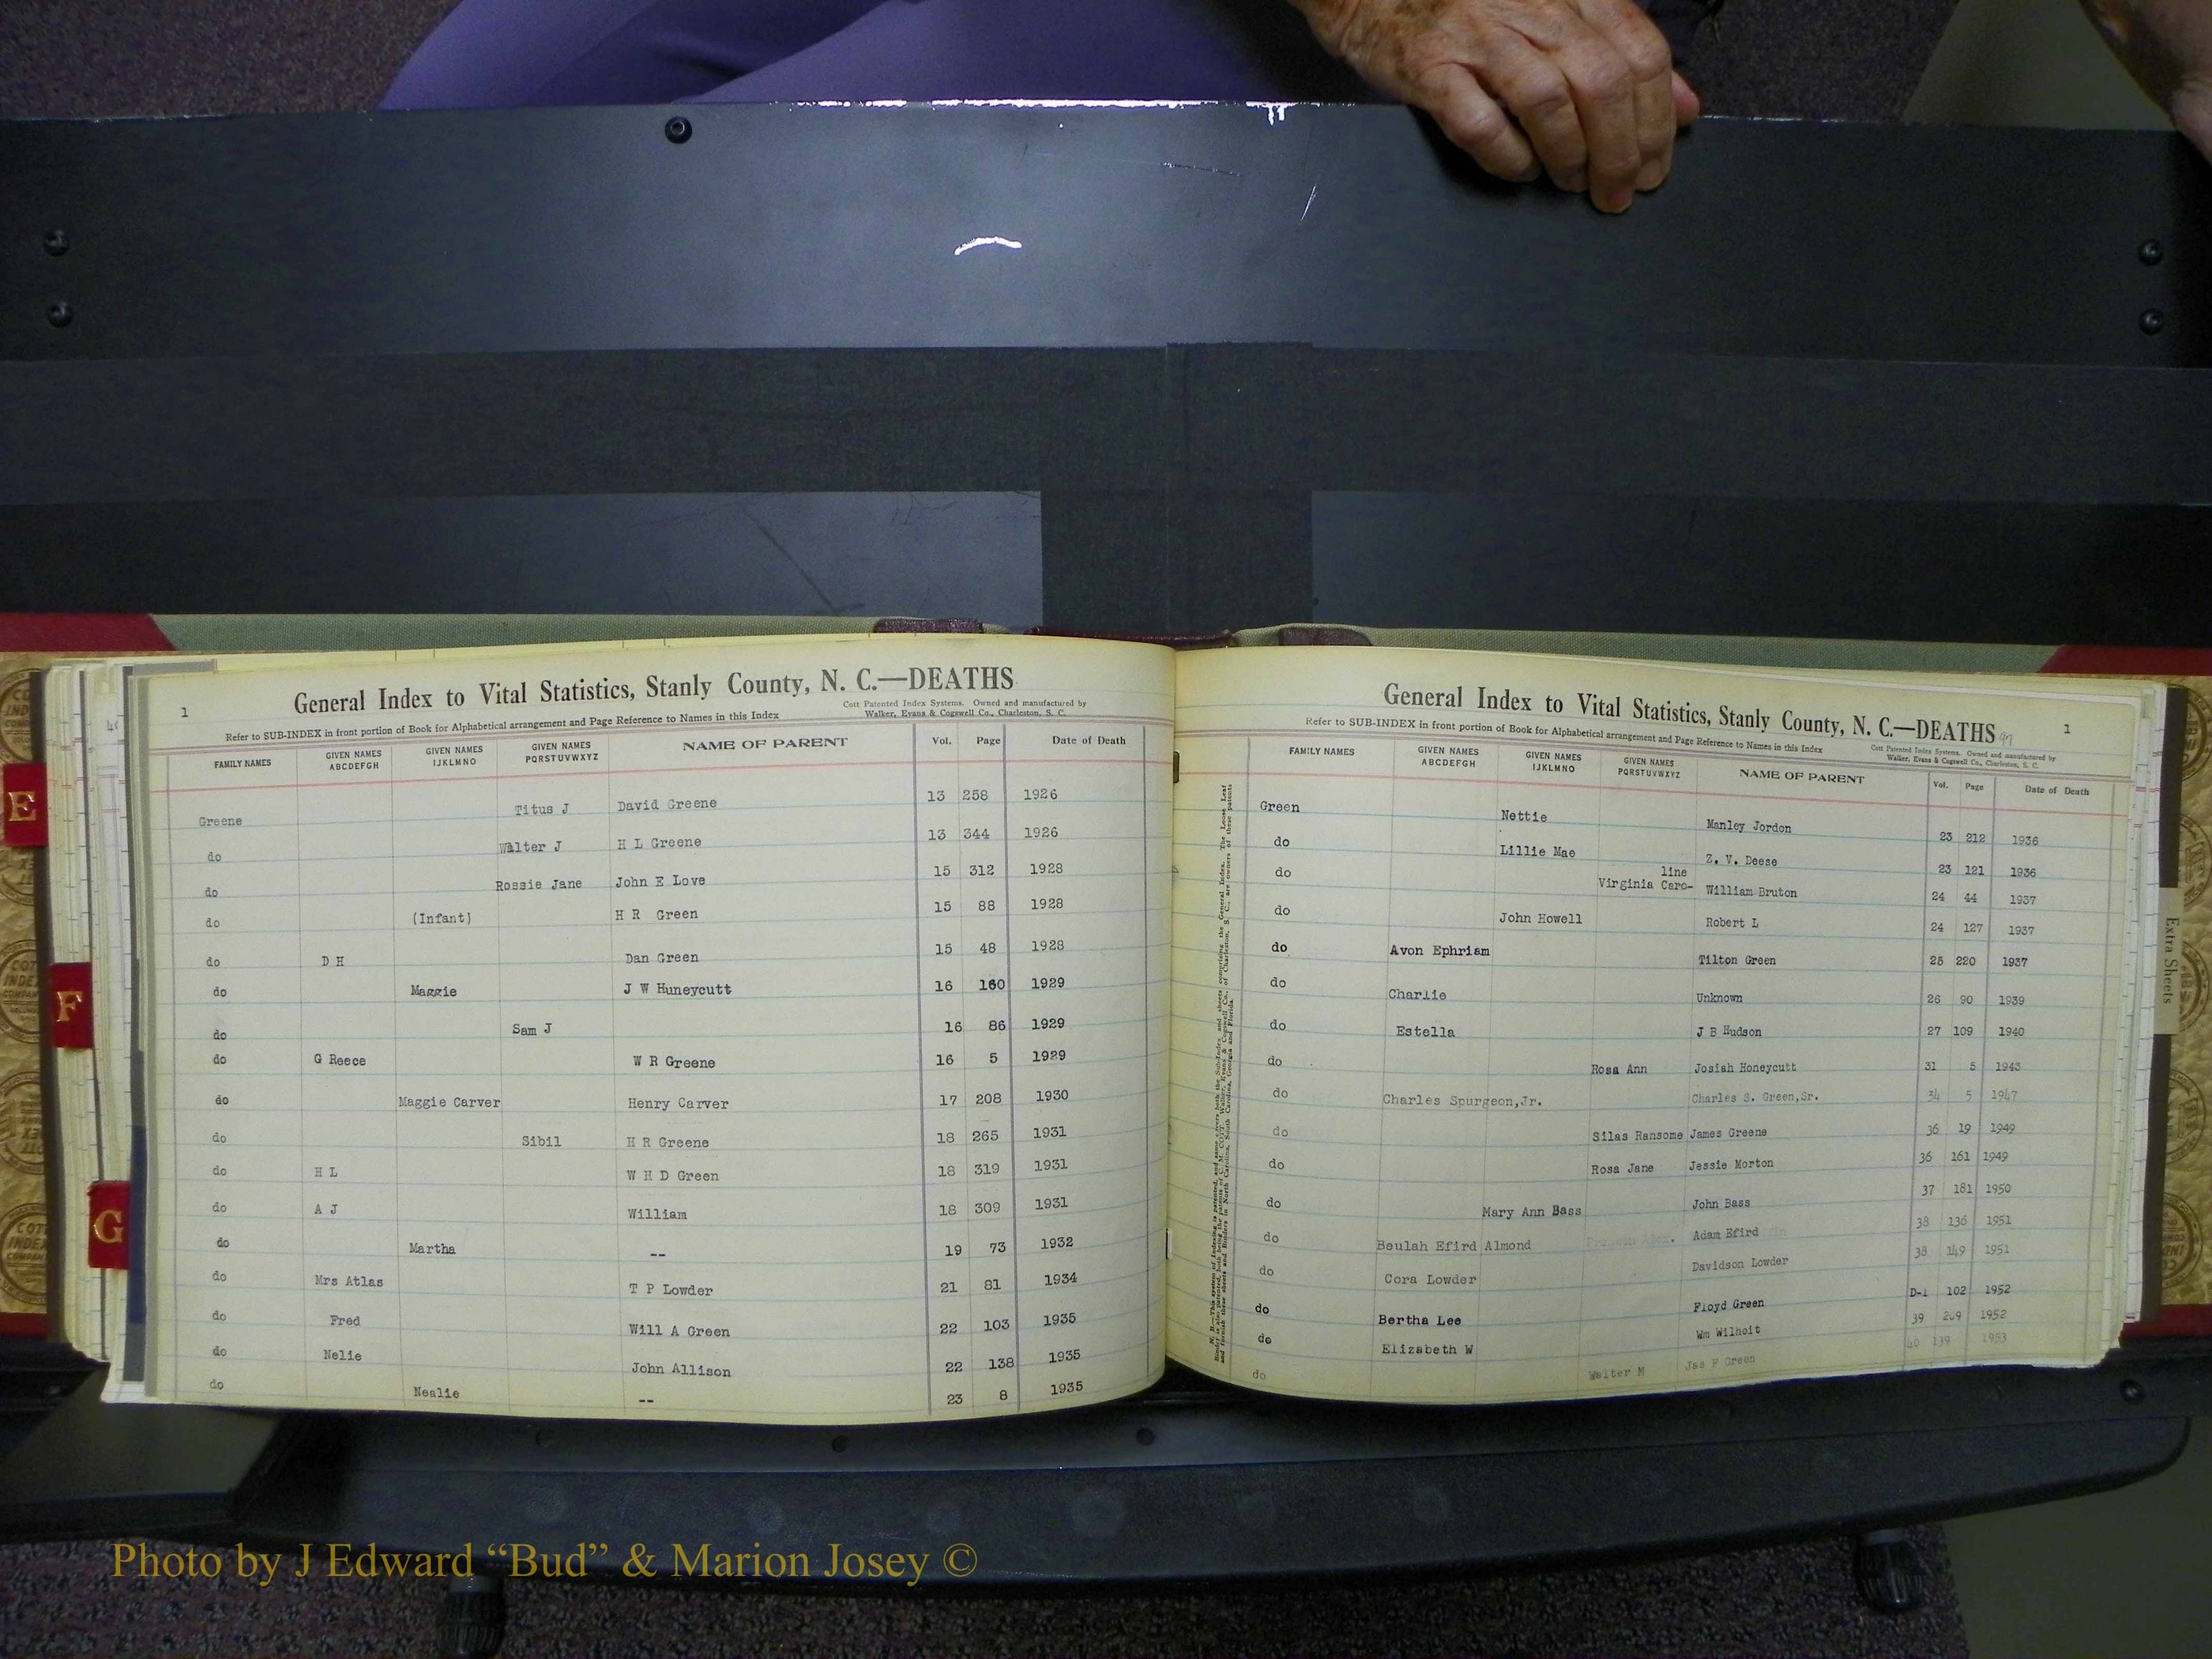 1
General Index to Vital Statistics, Stanly County, N. C.—DEATHS
Refer to SUB-INDEX in front portion of Book for Alphabetical arrangement and Page Reference to Names in this Index
Cott Patented Index Systems. Owned and manufactured by
Walker, Evans & Cogswell Co., Charleston, S. C.
FAMILY NAMES GIVEN NAMES ABCDEFGH GIVEN NAMES IJKLMNO GIVEN NAMES PQRSTUVWXYZ NAME OF PARENT Vol. Page Date of Death
Greene Titus J David Greene 13 258 1926
do Walter J H L Greene 13 344 1926
do Rossie Jane John E Love 15 312 1928
do (Infant) H R Green 15 88 1928
do D H Dan Green 15 48 1928
do Maggie J W Huneycutt 16 160 1929
do Sam J 16 86 1929
do G Reece W R Greene 16 5 1929
do Maggie Carver Henry Carver 17 208 1930
do Sibil H R Greene 18 265 1931
do H L W H D Green 18 319 1931
do A J William 18 309 1931
do Martha -- 19 73 1932
do Mrs Atlas T P Lowder 21 81 1934
do Fred Will A Green 22 103 1935
do Nelie John Allison 22 138 1935
do Nealie -- 23 8 1935
General Index to Vital Statistics, Stanly County, N. C.—DEATHS
1
Refer to SUB-INDEX in front portion of Book for Alphabetical arrangement and Page Reference to Names in this Index
Cott Patented Index Systems. Owned and manufactured by
Walker, Evans & Cogswell Co., Charleston, S. C.
FAMILY NAMES GIVEN NAMES ABCDEFGH GIVEN NAMES IJKLMNO GIVEN NAMES PQRSTUVWXYZ NAME OF PARENT Vol. Page Date of Death
Green Nettie Manley Jordon 23 212 1936
do Lillie Mae Z. V. Deese 23 121 1936
line
do Virginia Caro- William Bruton 24 44 1937
do John Howell Robert L 24 127 1937
do Avon Ephriam Tilton Green 25 220 1937
do Charlie Unknown 26 90 1939
do Estella J B Hudson 27 109 1940
do Rosa Ann Josiah Honeycutt 31 5 1943
do Charles Spurgeon,Jr. Charles S. Green,Sr. 34 5 1947
do Silas Ransome James Greene 36 19 1949
do Rosa Jane Jessie Morton 36 161 1949
do Mary Ann Bass John Bass 37 181 1950
do Beulah Efird Almond Adam Efird 38 136 1951
do Cora Lowder Davidson Lowder 38 149 1951
do Bertha Lee Floyd Green D-1 102 1952
do Elizabeth W Wm Wilhoit 39 209 1952
do Walter M Jas P Green 40 139 1953
E
F
G
Extra Sheets
Photo by J Edward “Bud” & Marion Josey ©